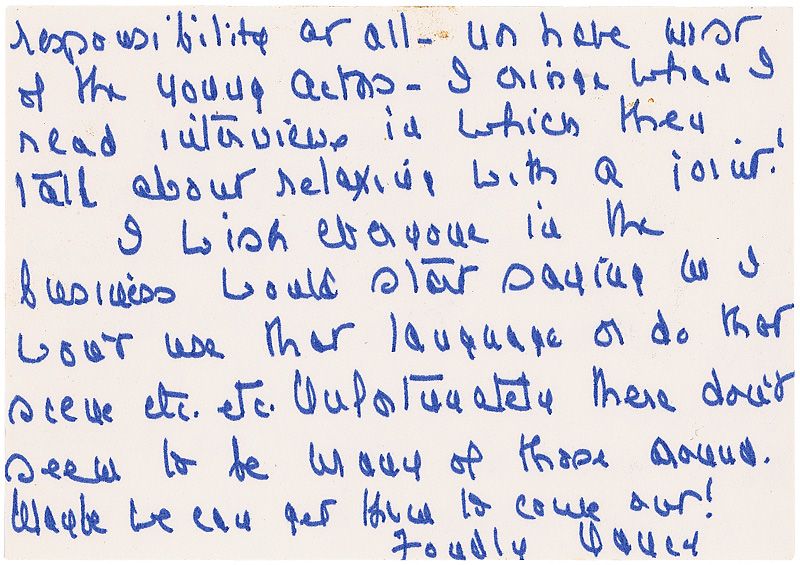 responsibility at all - nor have most
of the young actors - I cringe when I
read interviews in which they
talk about relaxing with a joint!
I wish everyone in the
business would start saying no I
won't use that language or do that
scene etc. etc. Unfortunately there don't
seem to be many of those around.
Maybe we can get them to come out!
Fondly Nancy